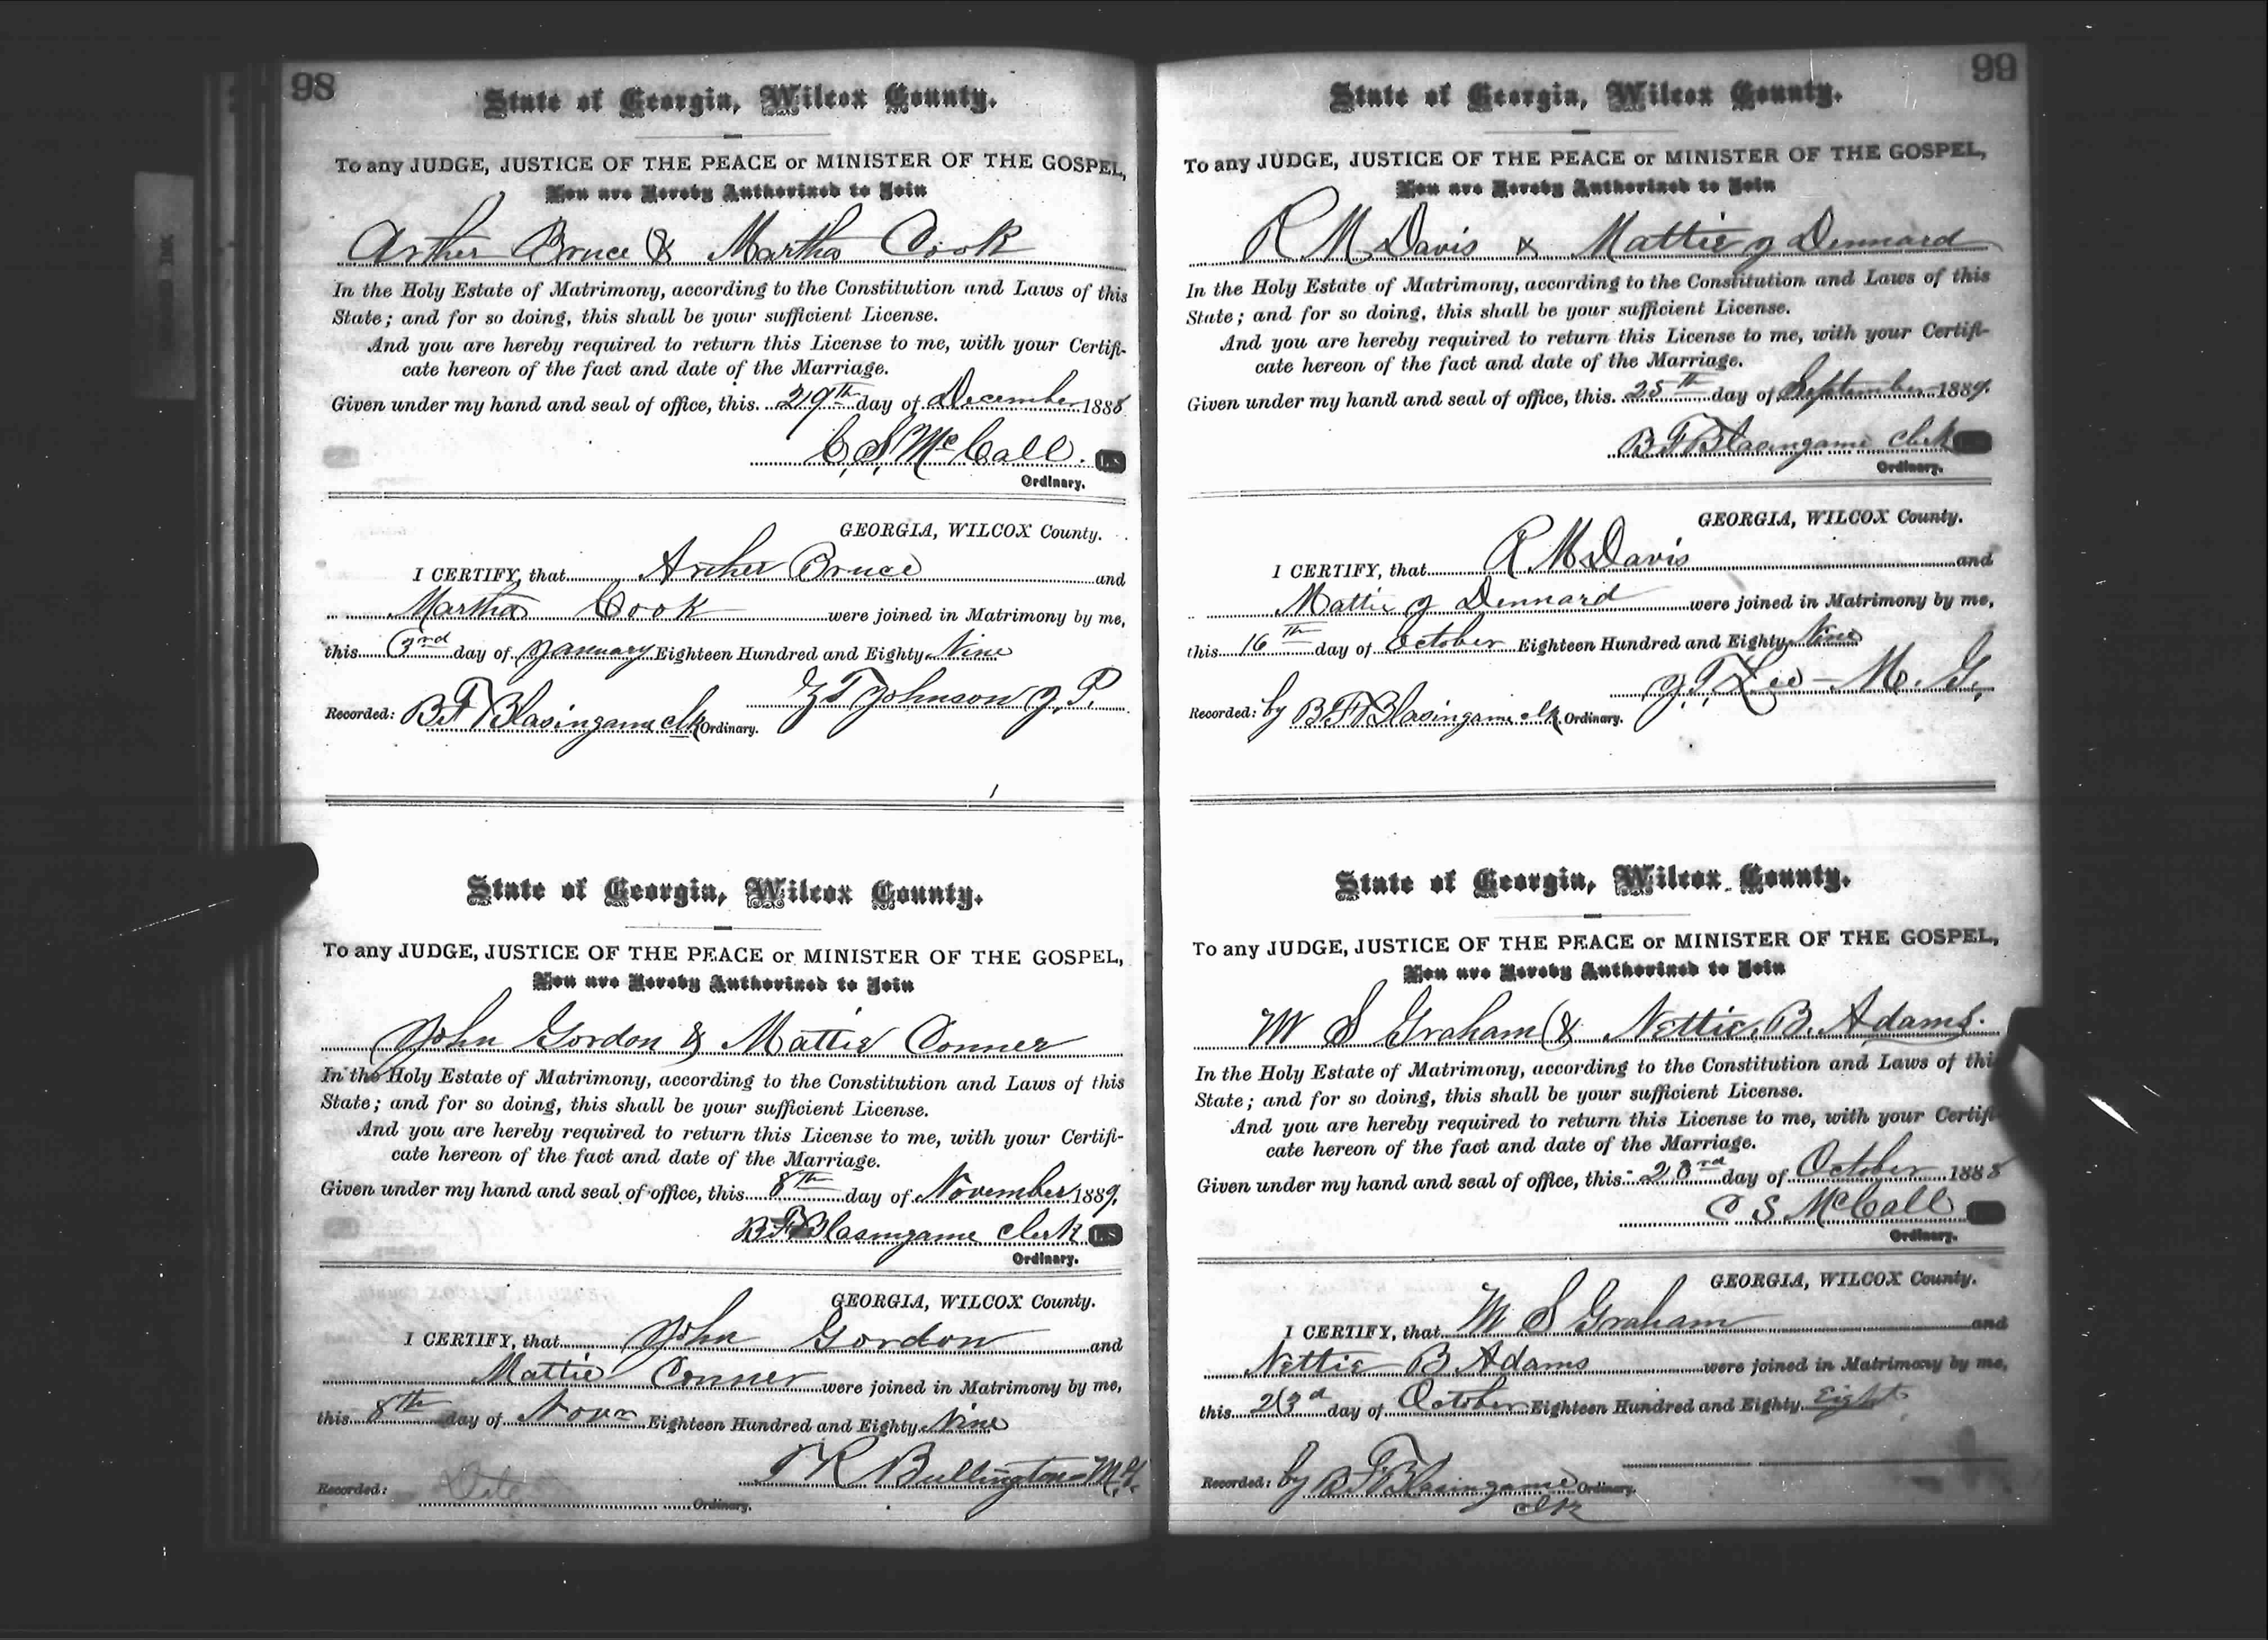 98
State of Georgia, Wilcox County.
To any JUDGE, JUSTICE OF THE PEACE or MINISTER OF THE GOSPEL,
You are Hereby Authorized to Join
Arther Bruce & Martha Cook
In the Holy Estate of Matrimony, according to the Constitution and Laws of this
State; and for so doing, this shall be your sufficient License.
And you are hereby required to return this License to me, with your Certifi-
cate hereon of the fact and date of the Marriage.
Given under my hand and seal of office, this 29th day of December 1888
C. S. McCall. L.S.
Ordinary.
GEORGIA, WILCOX County.
I CERTIFY, that Arther Bruce and
Martha Cook were joined in Matrimony by me,
this 3rd day of January Eighteen Hundred and Eighty Nine
Johnson J. P.
Recorded: B F Blasingame clk Ordinary.
State of Georgia, Wilcox County.
To any JUDGE, JUSTICE OF THE PEACE or MINISTER OF THE GOSPEL,
You are Hereby Authorized to Join
John Gordon & Mattie Conner
In the Holy Estate of Matrimony, according to the Constitution and Laws of this
State; and for so doing, this shall be your sufficient License.
And you are hereby required to return this License to me, with your Certifi-
cate hereon of the fact and date of the Marriage.
Given under my hand and seal of office, this 8th day of November 1889.
B F Blasingame Clerk L.S.
Ordinary.
GEORGIA, WILCOX County.
I CERTIFY, that John Gordon and
Mattie Conner were joined in Matrimony by me,
this 8th day of Novr Eighteen Hundred and Eighty Nine
T R Bullington - M.G.
Recorded: Date Ordinary.
99
State of Georgia, Wilcox County.
To any JUDGE, JUSTICE OF THE PEACE or MINISTER OF THE GOSPEL,
You are Hereby Authorized to Join
R M Davis & Mattie J Dennard
In the Holy Estate of Matrimony, according to the Constitution and Laws of this
State; and for so doing, this shall be your sufficient License.
And you are hereby required to return this License to me, with your Certifi-
cate hereon of the fact and date of the Marriage.
Given under my hand and seal of office, this 25th day of September 1889.
B F Blasingame Clerk
Ordinary.
GEORGIA, WILCOX County.
I CERTIFY, that R M Davis and
Mattie J Dennard were joined in Matrimony by me,
this 16th day of October Eighteen Hundred and Eighty Nine
J. T. Lee - M. G.
Recorded: by B F Blasingame clk Ordinary.
State of Georgia, Wilcox County.
To any JUDGE, JUSTICE OF THE PEACE or MINISTER OF THE GOSPEL,
You are Hereby Authorized to Join
M S Graham & Nettie B. Adams.
In the Holy Estate of Matrimony, according to the Constitution and Laws of thi
State; and for so doing, this shall be your sufficient License.
And you are hereby required to return this License to me, with your Certifi
cate hereon of the fact and date of the Marriage.
Given under my hand and seal of office, this 23rd day of October 1888
C S McCall
Ordinary.
GEORGIA, WILCOX County.
I CERTIFY, that M S Graham and
Nettie B Adams were joined in Matrimony by me,
this 23d day of October Eighteen Hundred and Eighty Eight
Recorded: by B F Blasingame Ordinary.
clk